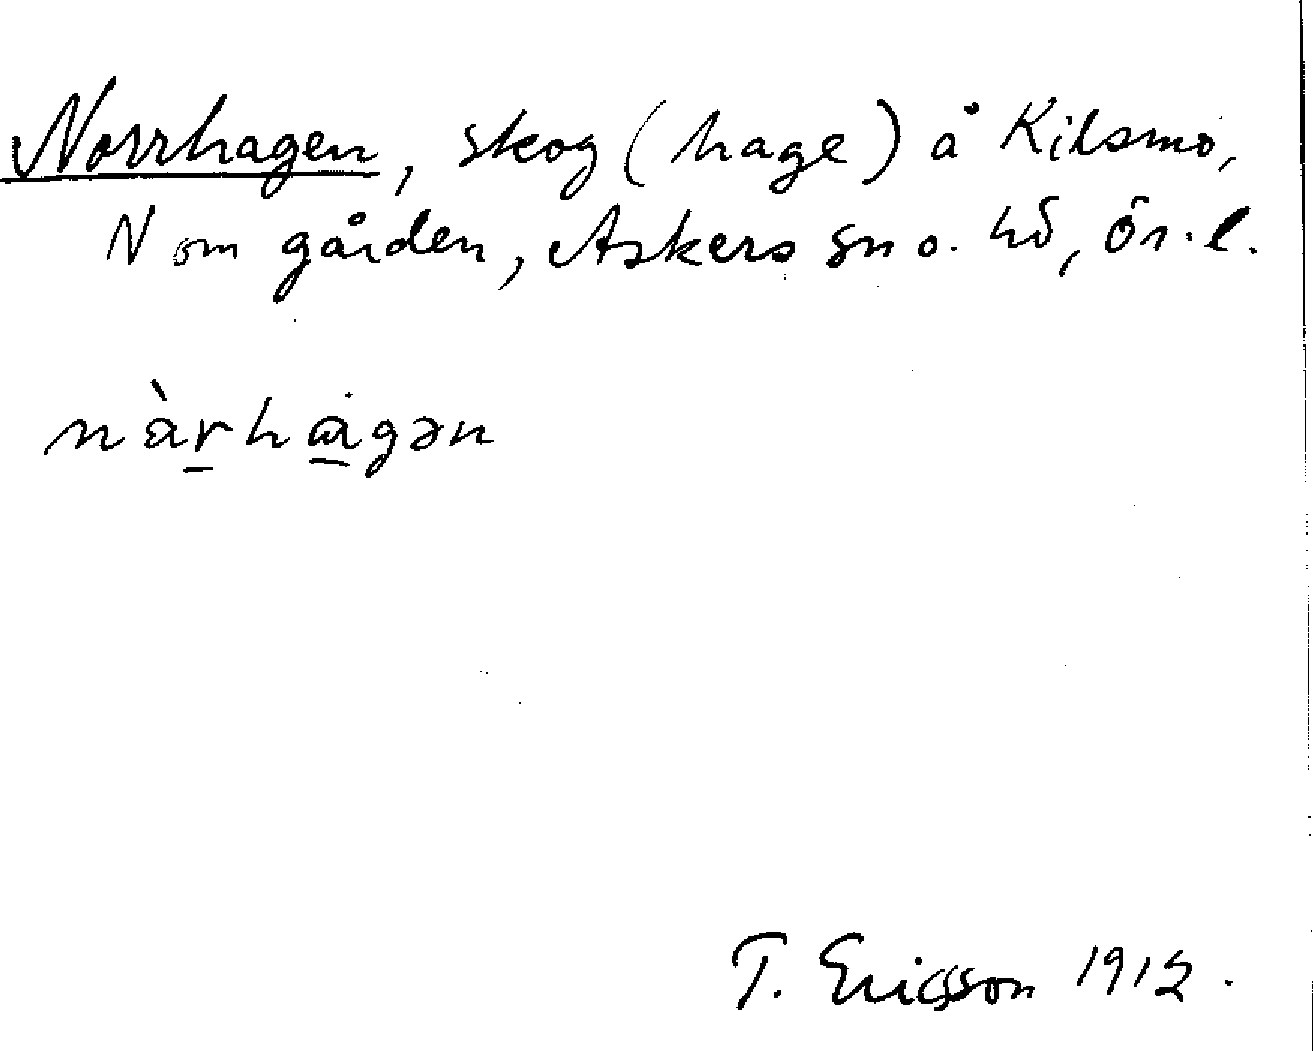 Norrhagen, skog (hage) å Kilsmo,
N om gården, Askers sn o. hd, Ör. l.
nàrhagən
T. Ericsson 1912.